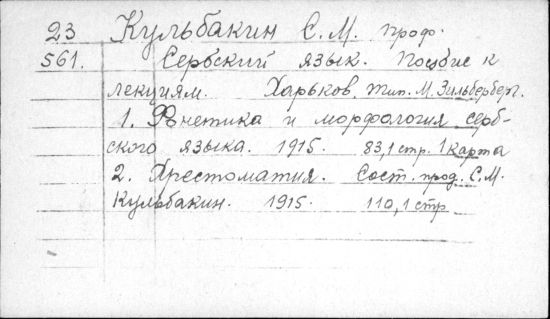 23 Кульбакин С. М. проф.
561. Сербский язык. Пособие к
лекциям. Харьков, тип. М. Зильберберг.
1. Фонетика и морфология серб-
ского языка. 1915. 83,1 стр. 1 карта
2. Хрестоматия. Сост. проф. С. М.
Кульбакин. 1915. 110,1 стр